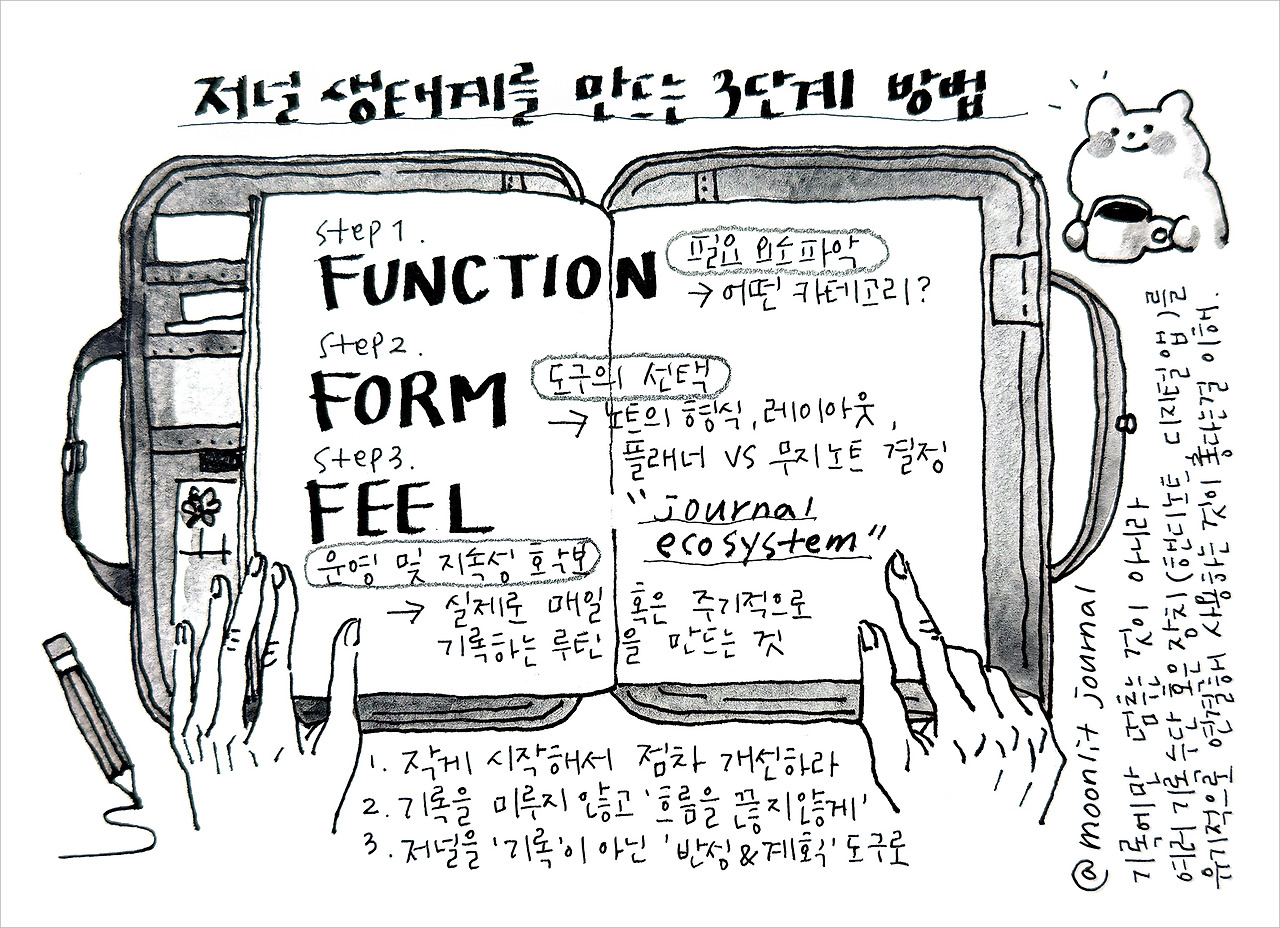 저널 생태계를 만드는 3단계 방법
step 1.
FUNCTION
필요 요소 파악
→ 어떤 카테고리?
step 2.
FORM
도구의 선택
→ 노트의 형식, 레이아웃,
플래너 VS 무지노트 결정
step 3.
FEEL
운영 및 지속성 확보
→ 실제로 매일 혹은 주기적으로
기록하는 루틴을 만드는 것
"journal
ecosystem"
1. 작게 시작해서 점차 개선하라
2. 기록을 미루지 않고 '흐름을 끊지않게'
3. 저널을 '기록'이 아닌 '반성&계획' 도구로
@moonlit journal
기록에만 멈추는 것이 아니라
여러 기록 수단 혹은 장치(핸디노트 디지털 앱)를
유기적으로 연결해 사용하는 것이 좋다는걸 이해.